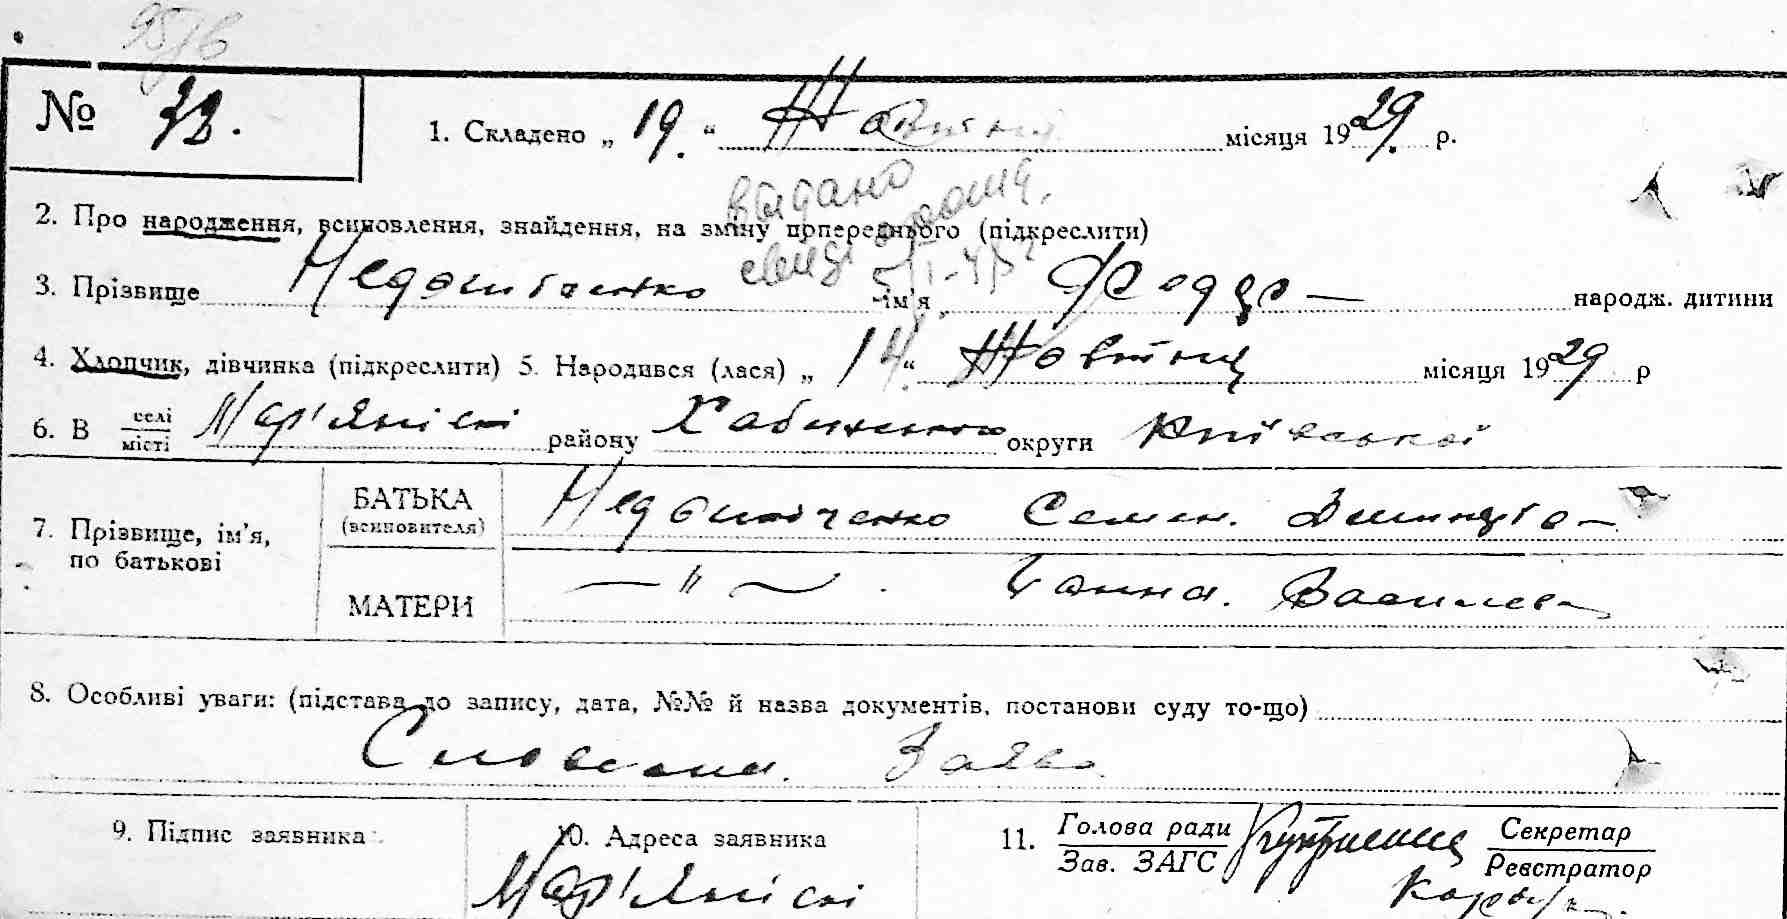 95/в
№ 73.
1. Складено „ 19. “ Жовтня місяця 1929 р.
видано
свид
2. Про народження, всиновлення, знайдення, на зміну попереднього (підкреслити)
3. Прізвище ім'я Федір — народж. дитини
4. Хлопчик, дівчинка (підкреслити) 5. Народився (лася) „ 14 “ Жовтня місяця 1929 р
6. В селі/місті Мар'янівці району округи Київської
7. Прізвище, ім'я, по батькові
БАТЬКА (всиновителя) Семен.
МАТЕРИ — „ — . Ганна. Василева
8. Особливі уваги: (підстава до запису, дата, №№ й назва документів, постанови суду то-що)
Словесна. Заява
9. Підпис заявника
10. Адреса заявника
11. Голова ради Секретар
Зав. ЗАГС Реєстратор